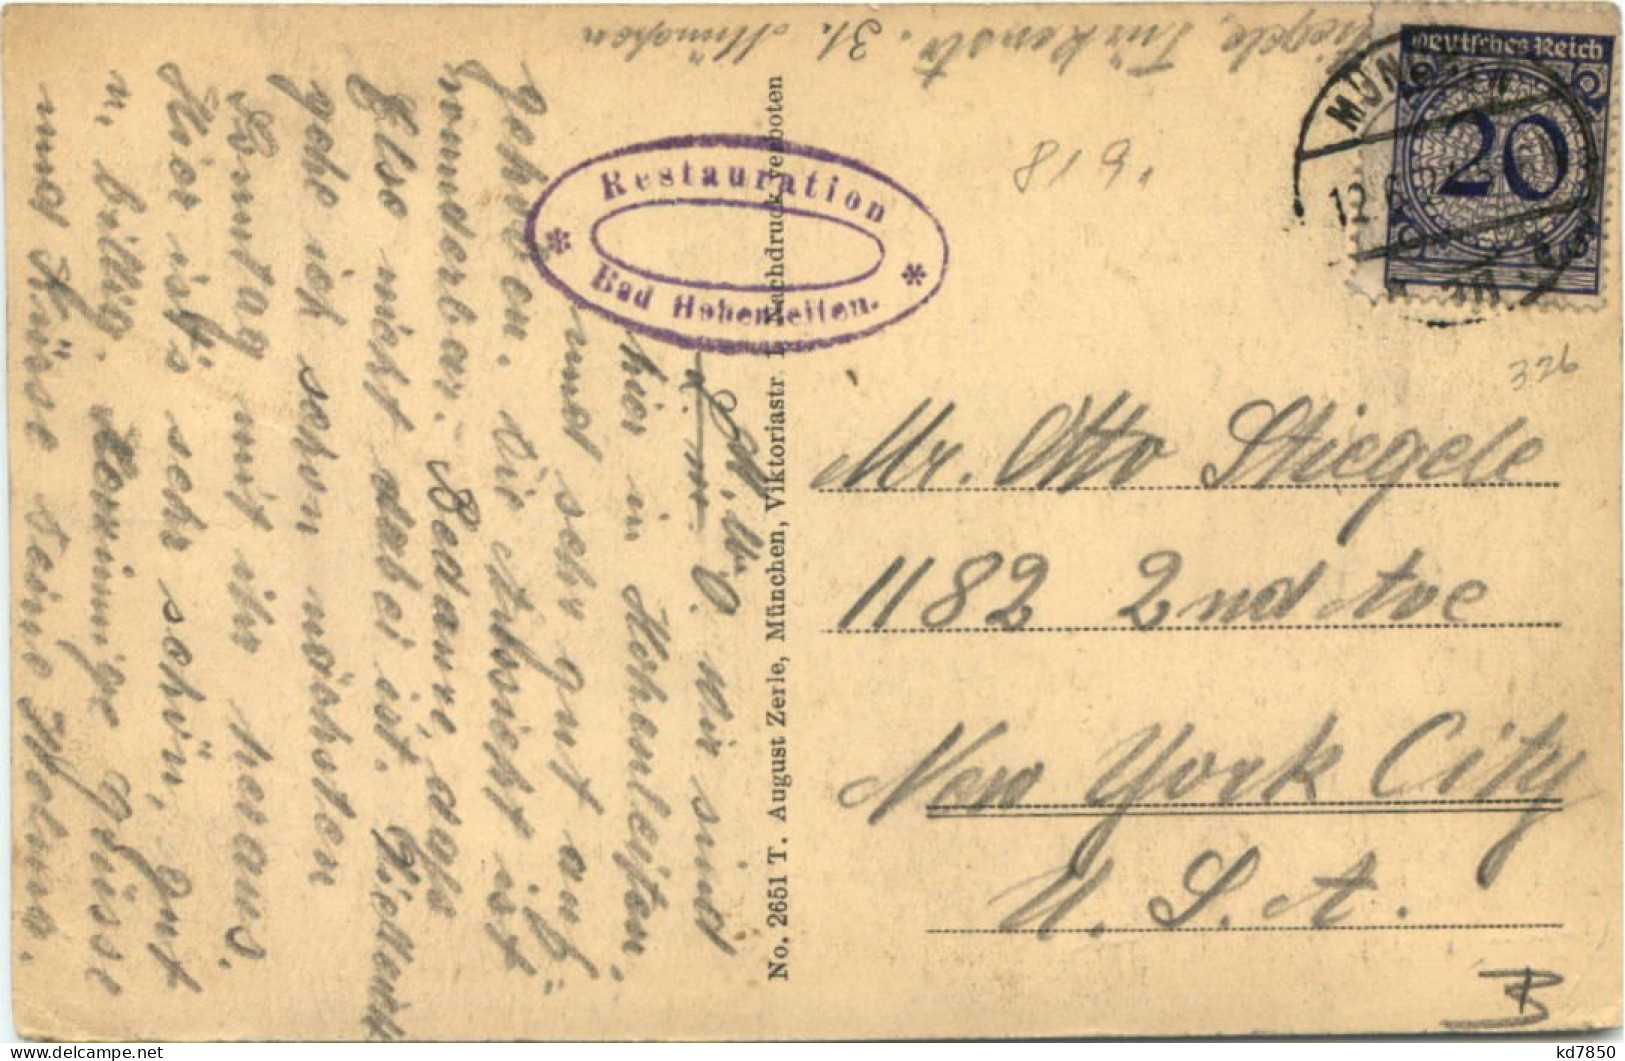 Stiegele, Türkenstr. 31. München
Deutsches Reich
20
MÜNCHEN
12.
819.
326
Restauration
Bad Hohenleiten.
Mr. Otto Stiegele
1182 2nd Ave
New York City
U. S. A.
No. 2651 T. August Zerle, München, Viktoriastr. Nachdruck verboten
L. O. Wir sind
hier in Hohenleiten,
und sehr gut auf-
gehoben. Die Aussicht ist
wunderbar. Bedaure, dass
Else nicht dabei ist. Vielleicht
gehe ich schon nächsten
Sonntag mit ihr heraus.
Hier ist's sehr schön, gut
u. billig. Herzinnige Grüsse
und Küsse Deine
kd7850